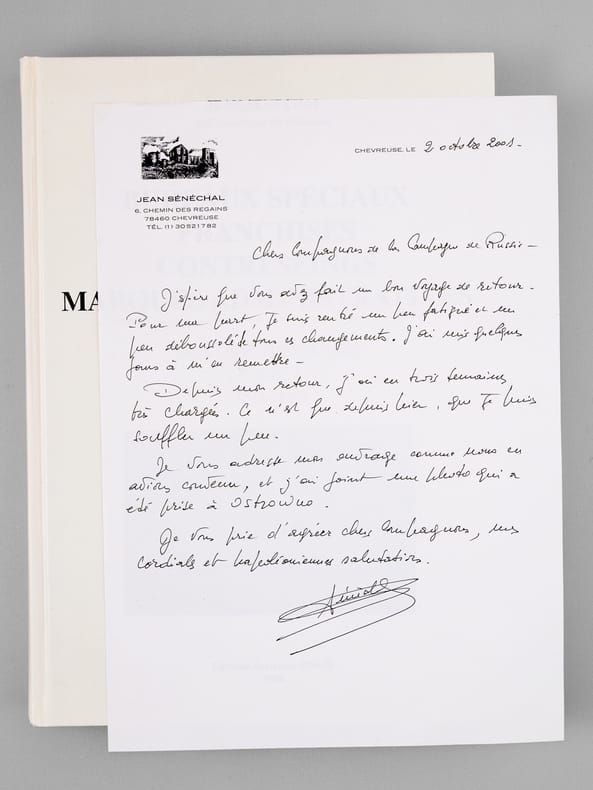 CHEVREUSE, LE 2 octobre 2001-
JEAN SÉNÉCHAL
6, CHEMIN DES REGAINS
78460 CHEVREUSE
TÉL. (1) 30521782
Chers Compagnons de la Campagne de Russie-
J'espère que vous avez fait un bon voyage de retour.
Pour ma part, je suis rentré un peu fatigué et un
peu déboussolé de tous ces changements. J'ai mis quelques
jours à m'en remettre-
Depuis mon retour, j'ai eu trois semaines
très chargées. Ce n'est que depuis hier, que je puis
souffler un peu.
Je vous adresse mon ouvrage comme nous en
avions convenu, et j'ai joint une photo qui a
été prise à Ostrowno.
Je vous prie d'agréer chers Compagnons, mes
cordiales et napoléoniennes salutations.
MA
BUREAUX SPECIAUX
FRANCHISES
CONTRESEINGS